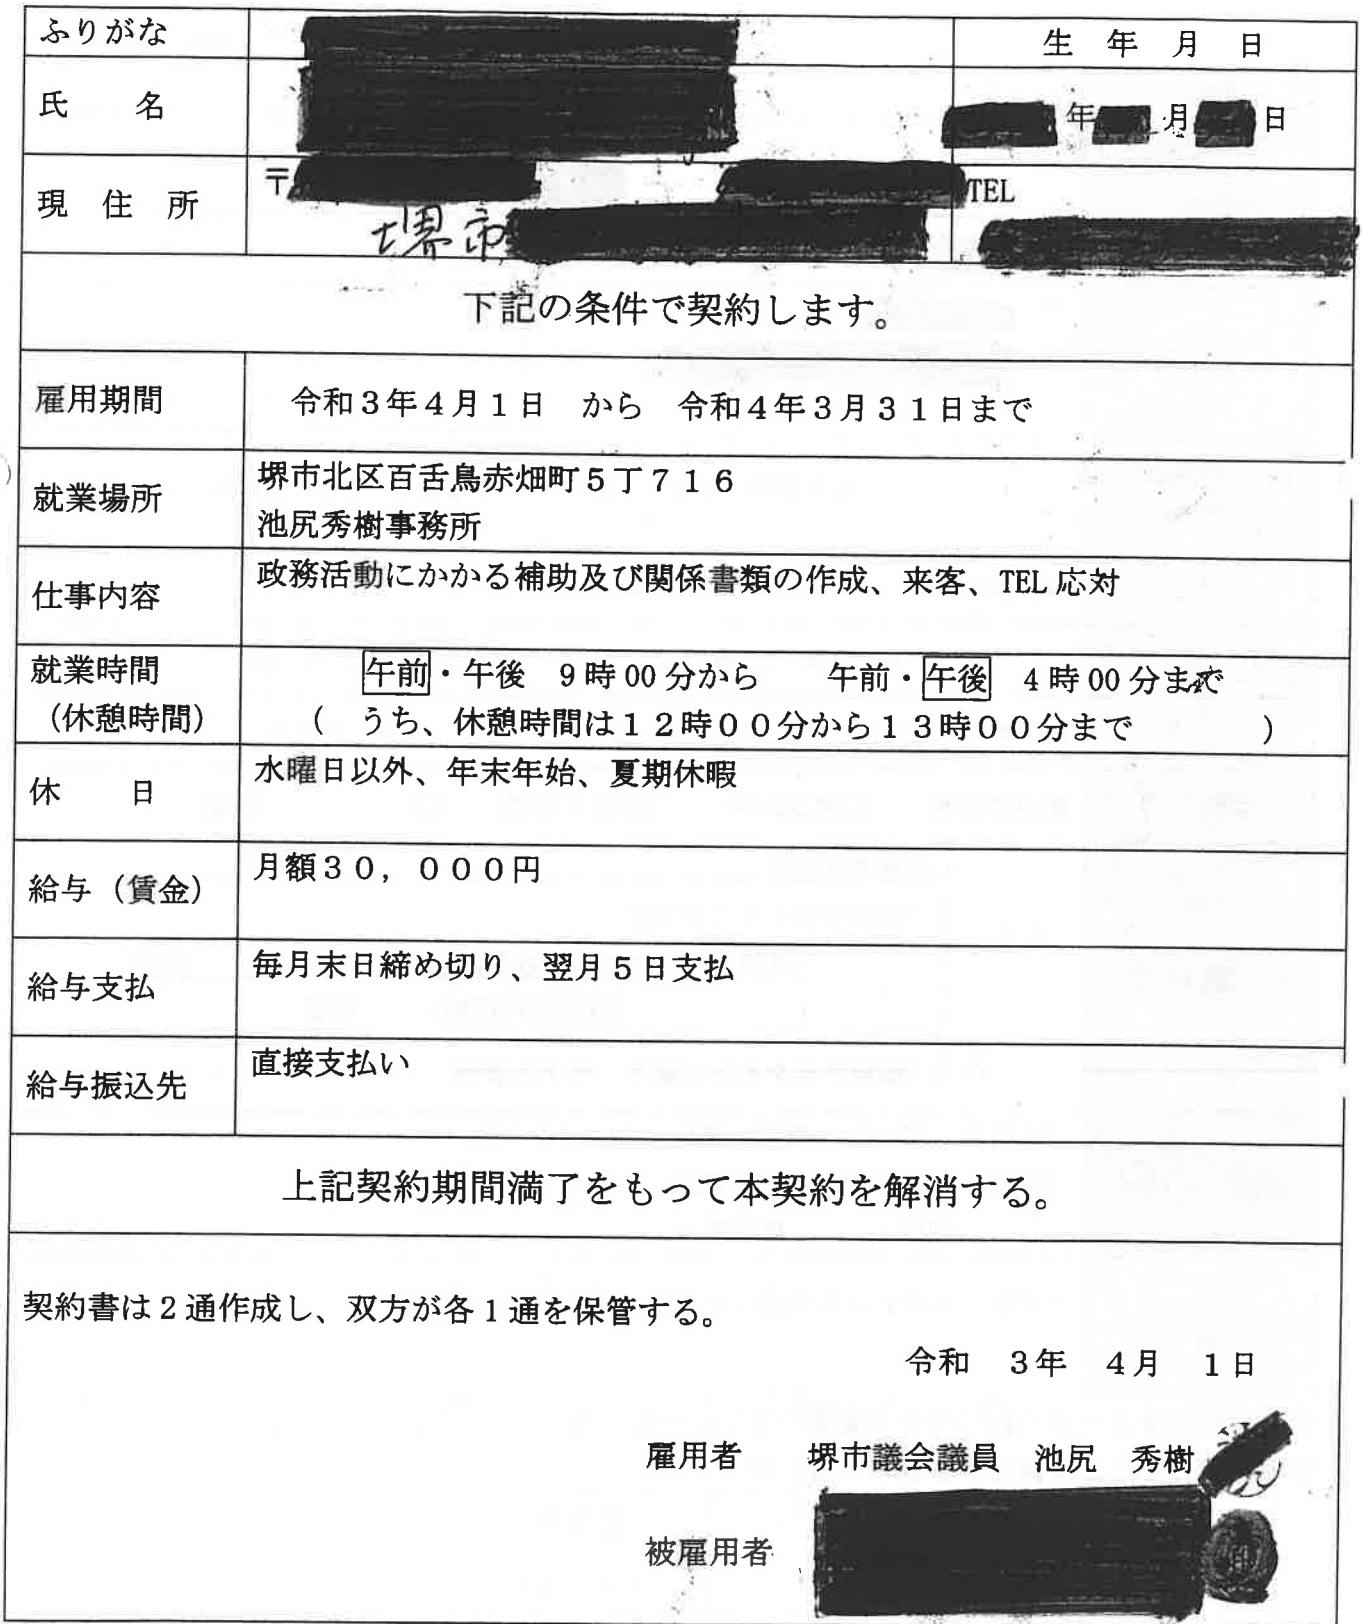 ふりがな
生 年 月 日
氏 名
年 月 日
現 住 所
〒
TEL
堺市
下記の条件で契約します。
雇用期間
令和3年4月1日 から 令和4年3月31日まで
就業場所
堺市北区百舌鳥赤畑町5丁716
池尻秀樹事務所
仕事内容
政務活動にかかる補助及び関係書類の作成、来客、TEL応対
就業時間
(休憩時間)
午前・午後 9時00分から 午前・午後 4時00分まで
( うち、休憩時間は12時00分から13時00分まで )
休 日
水曜日以外、年末年始、夏期休暇
給与(賃金)
月額30,000円
給与支払
毎月末日締め切り、翌月5日支払
給与振込先
直接支払い
上記契約期間満了をもって本契約を解消する。
契約書は2通作成し、双方が各1通を保管する。
令和 3年 4月 1日
雇用者 堺市議会議員 池尻 秀樹
被雇用者